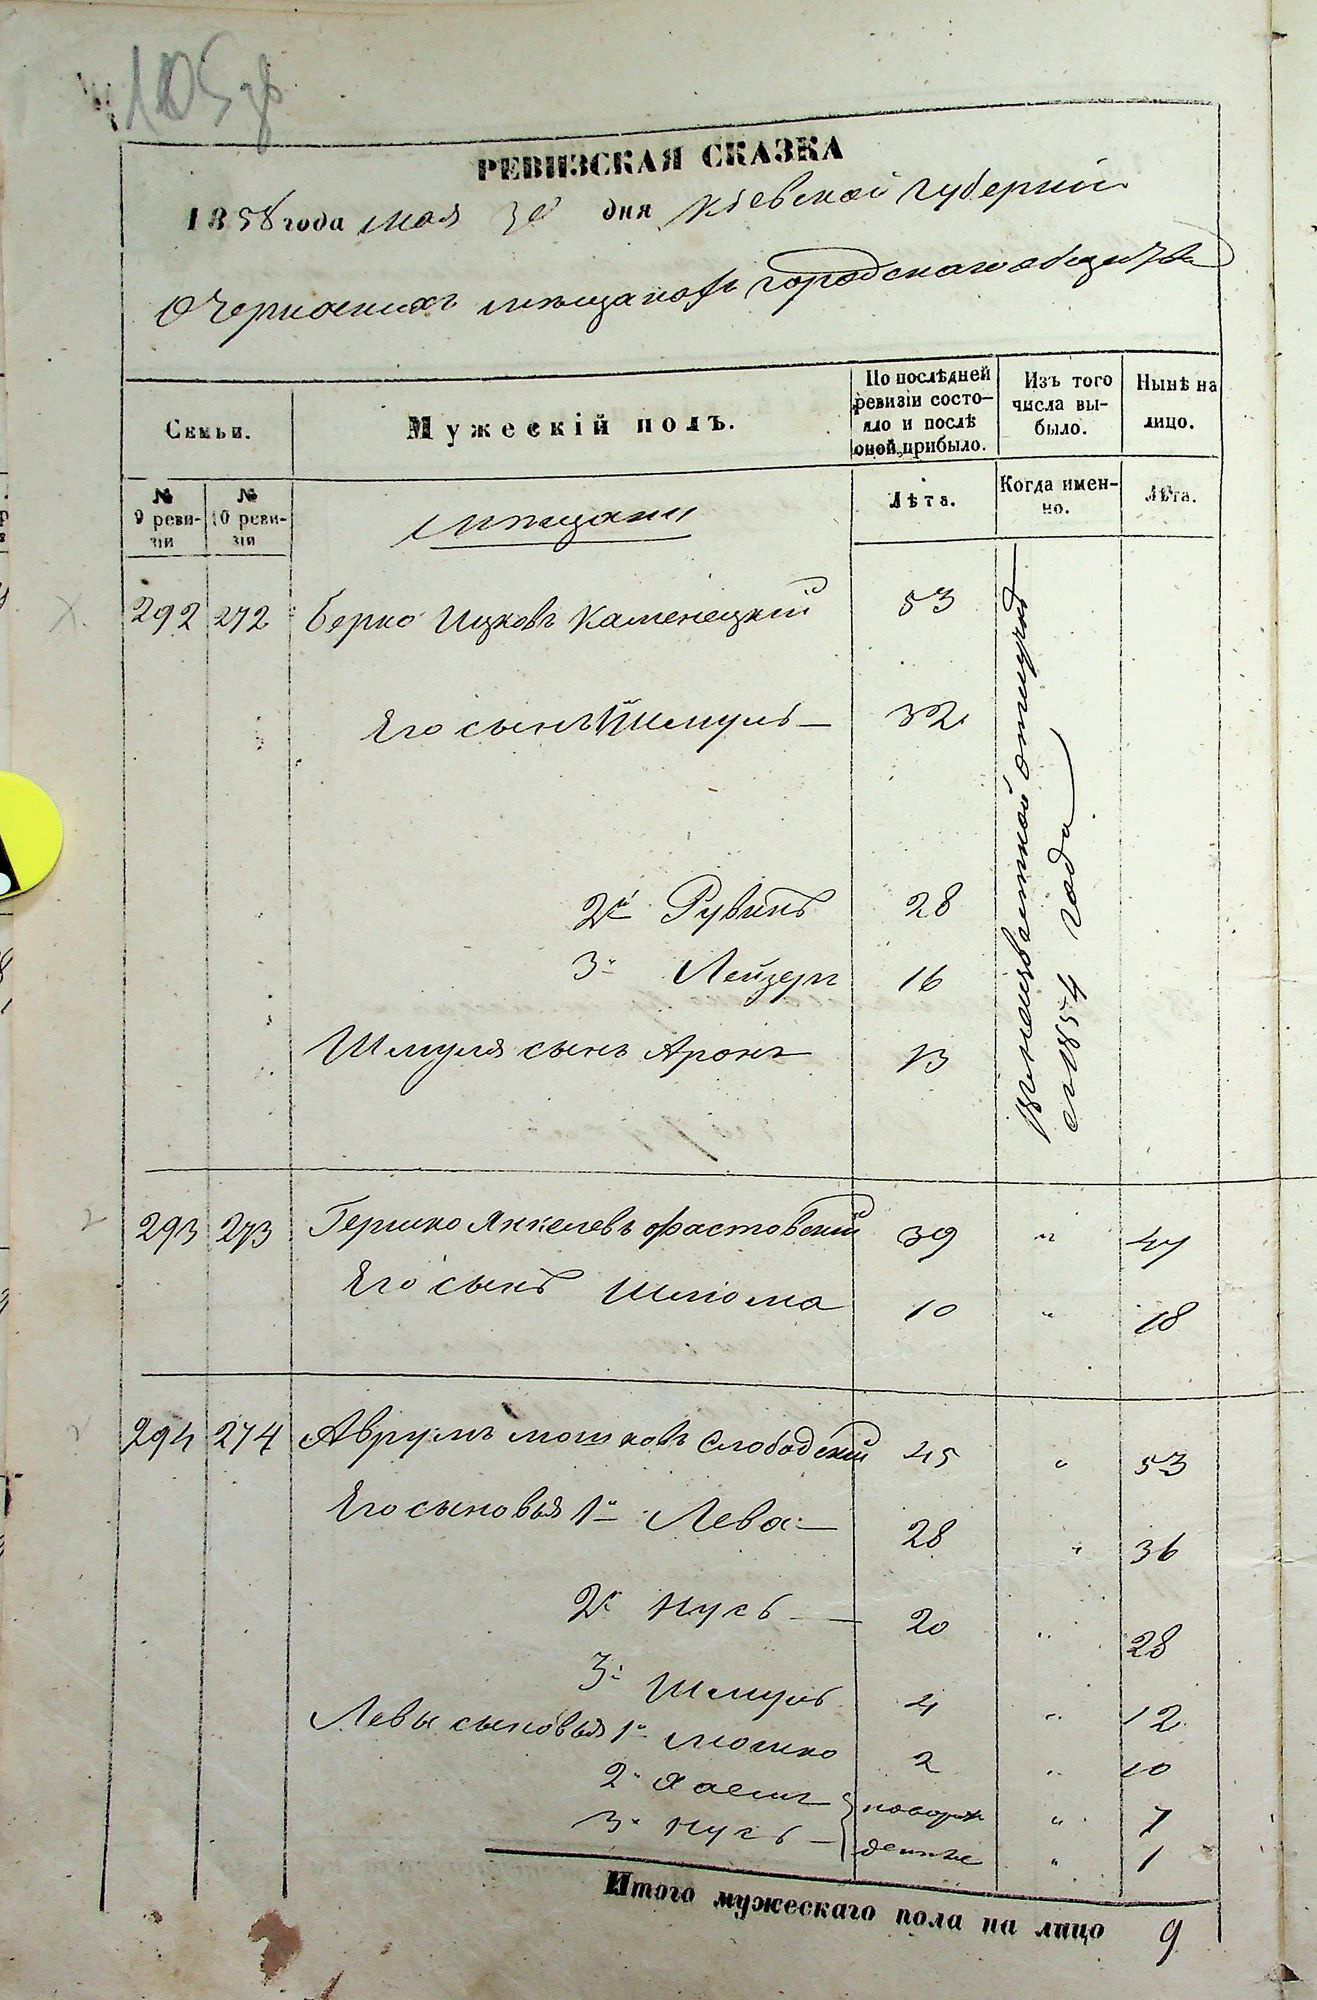 105 об
РЕВИЗСКАЯ СКАЗКА
1858 года мая 30 дня Кіевской губерніи
О Черкаскихъ мѣщанахъ городскаго общества
Семьи.
Мужескій полъ.
По послѣдней ревизіи состояло и послѣ оной прибыло.
Изъ того числа выбыло.
Нынѣ на лицо.
№ 9 ревизіи
№ 10 ревизіи
мѣщане
Лѣта.
Когда именно.
Лѣта.
292 272 Берко Ицковъ Каменецкій 53
Его сынъ 1й Шмуль 32
2й Рувинъ 28
3й Лейзеръ 16
Шмуля сынъ Аронъ 13
въ неизвѣстной отлучкѣ
съ 1854 года
293 273 Гершко Янкелевъ Фастовскій 39 " 47
Его сынъ Шлиома 10 " 18
294 274 Аврумъ Мошковъ Слободскій 45 " 53
Его сыновья 1й Лева 28 " 36
2й Нусъ 20 " 28
3й Шмуль 4 " 12
Левы сыновья 1й Мошко 2 " 10
2й Хаимъ новорож " 7
3й Нусъ денные " 1
Итого мужескаго пола на лицо 9